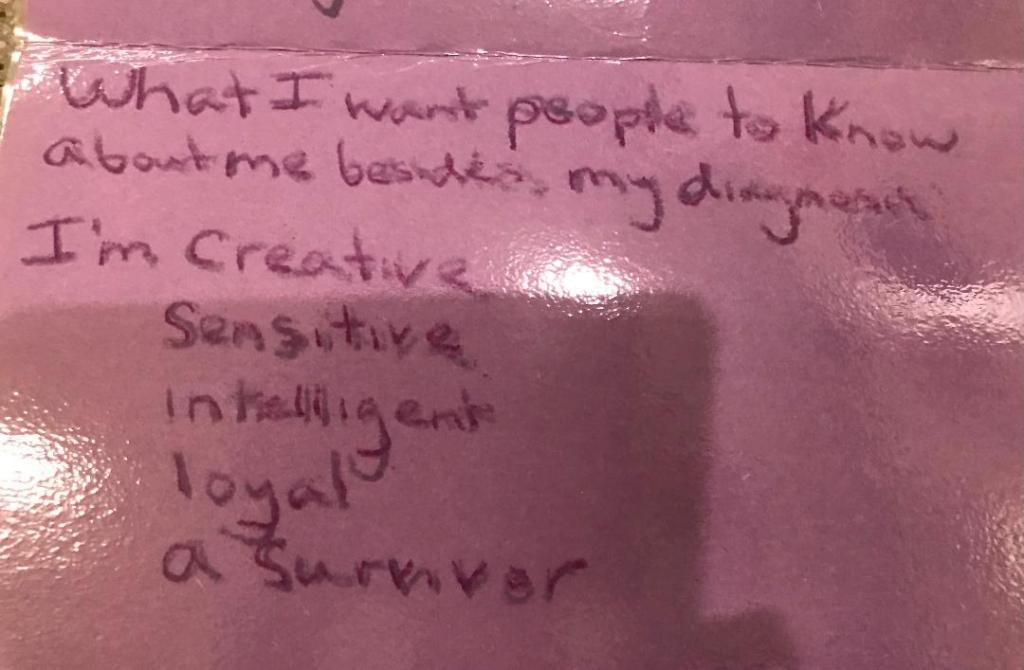 What I want people to Know
about me besides my diagnosis
I'm Creative
Sensitive
intelligent
loyal
a Survivor